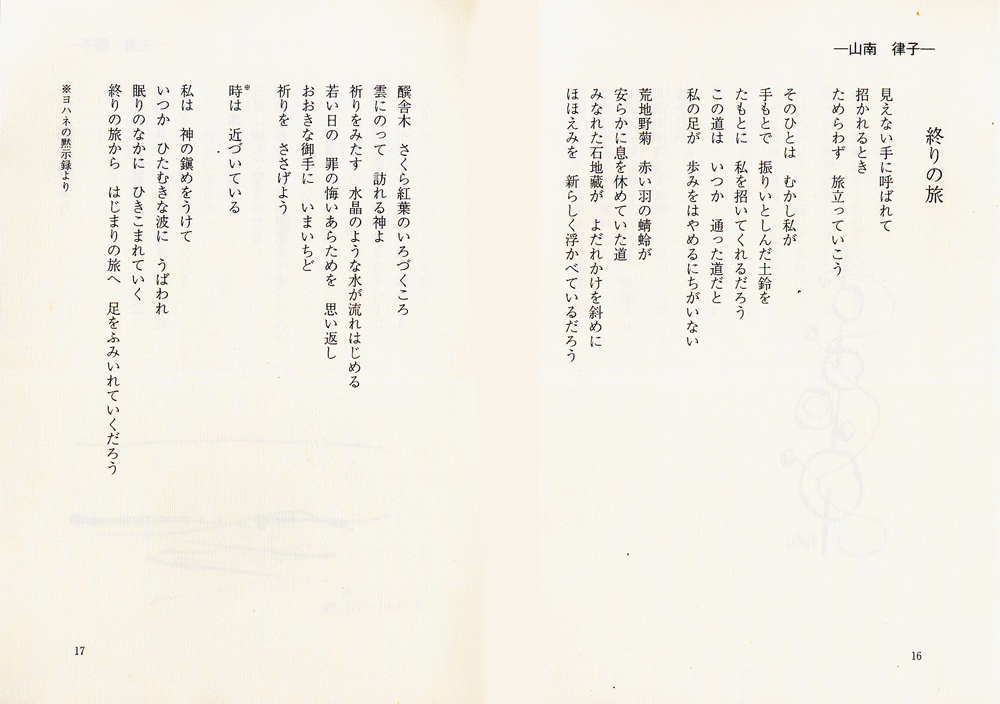 ―山南　律子―
終りの旅
見えない手に呼ばれて
招かれるとき
ためらわず　旅立っていこう
そのひとは　むかし私が
手もとで　振りいとしんだ土鈴を
たもとに　私を招いてくれるだろう
この道は　いつか　通った道だと
私の足が　歩みをはやめるにちがいない
荒地野菊　赤い羽の蜻蛉が
安らかに息を休めていた道
みなれた石地蔵が　よだれかけを斜めに
ほほえみを　新らしく浮かべているだろう
16
醗舎木　さくら紅葉のいろづくころ
雲にのって　訪れる神よ
祈りをみたす　水晶のような水が流れはじめる
若い日の　罪の悔いあらためを　思い返し
おおきな御手に　いまいちど
祈りを　ささげよう
時※は　近づいている
私は　神の鎭めをうけて
いつか　ひたむきな波に　うばわれ
眠りのなかに　ひきこまれていく
終りの旅から　はじまりの旅へ　足をふみいれていくだろう
※ヨハネの黙示録より
17